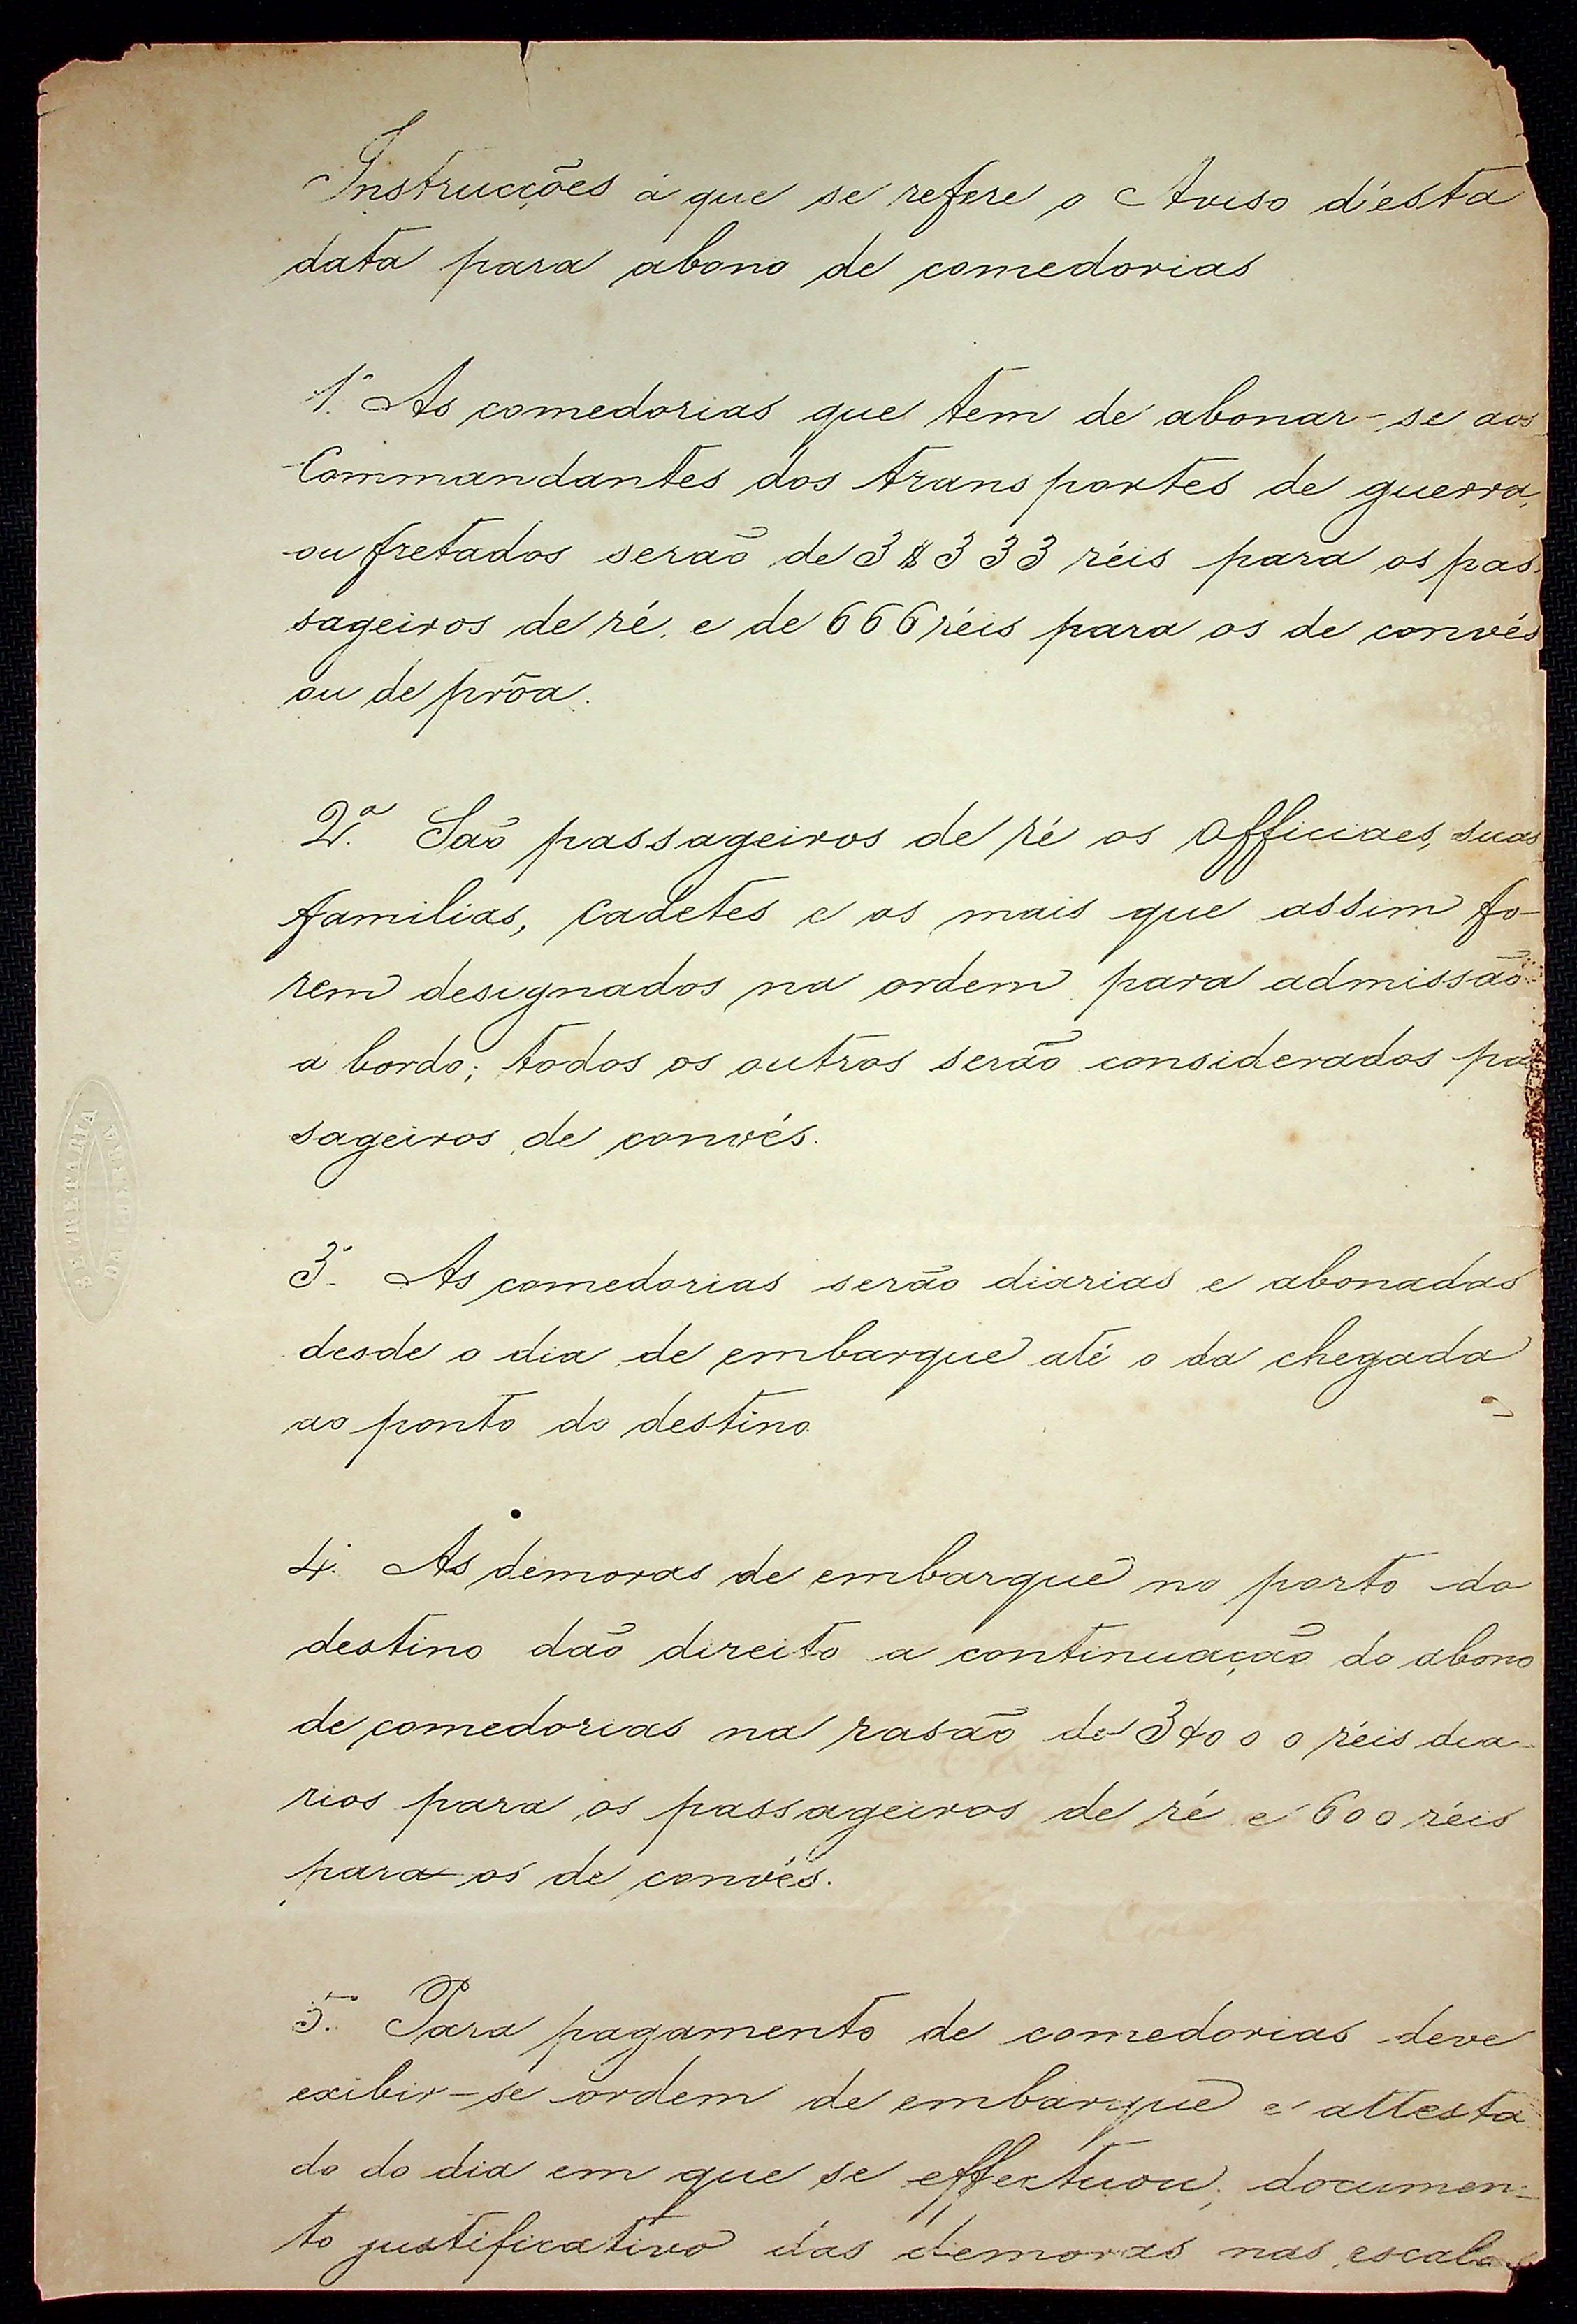 Instrucções á que se refere o Aviso d'esta
data para abono de comedorias
1ª. As comedorias que tem de abonar-se aos
Commandantes dos transportes de guerra,
ou fretados serão de 3$333 réis para os pas-
sageiros de ré, e de 666 réis para os de convés
ou de prôa.
2ª. São passageiros de ré os Officiaes, suas
familias, Cadetes e os mais que assim fo-
rem designados na ordem para admissão
a bordo; todos os outros serão considerados pas
sageiros de convés.
3ª. As comedorias serão diarias e abonadas
desde o dia de embarque até o da chegada
ao ponto do destino.
4ª. As demoras de embarque no porto do
destino dão direito a continuação do abono
de comedorias na rasão de 3$000 réis dia-
rios para os passageiros de ré e 600 réis
para os de convés.
5ª. Para pagamento de comedorias deve
exibir-se ordem de embarque e attesta
do do dia em que se effectuou; documen-
to justificativo das demoras nas escalas